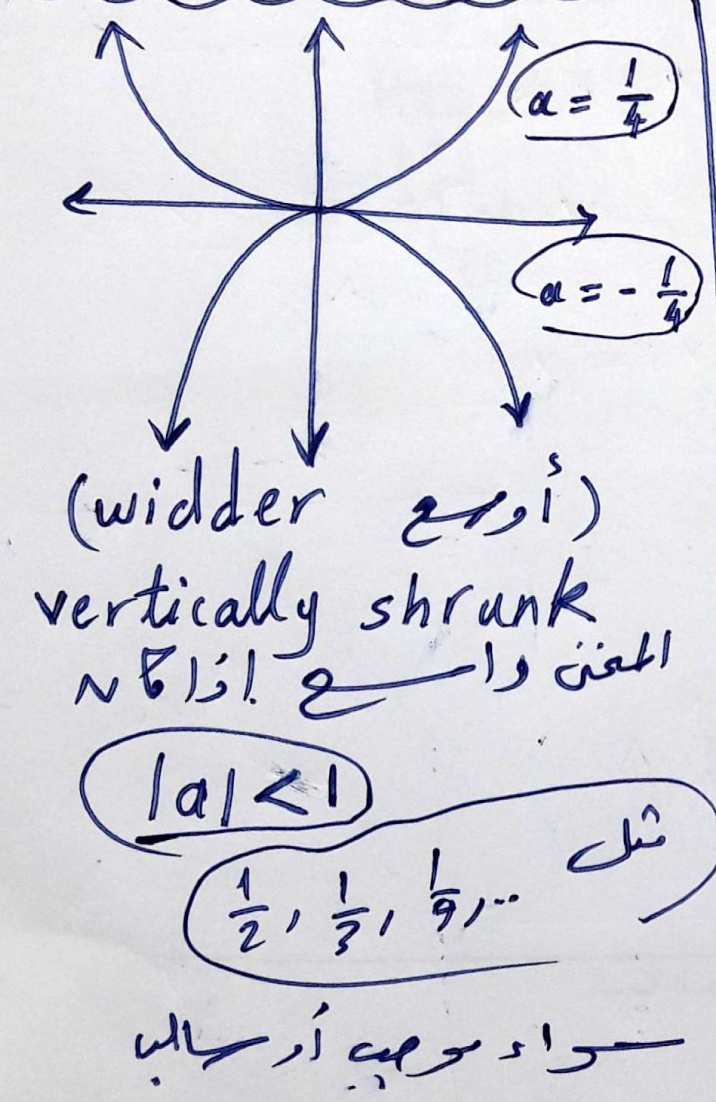 a = 1/4
a = - 1/4
(widder أوسع)
vertically shrunk
المنحنى واسع إذا كان
|a| < 1
مثل 1/2, 1/3, 1/9, ..
سواء موجب أو سالب